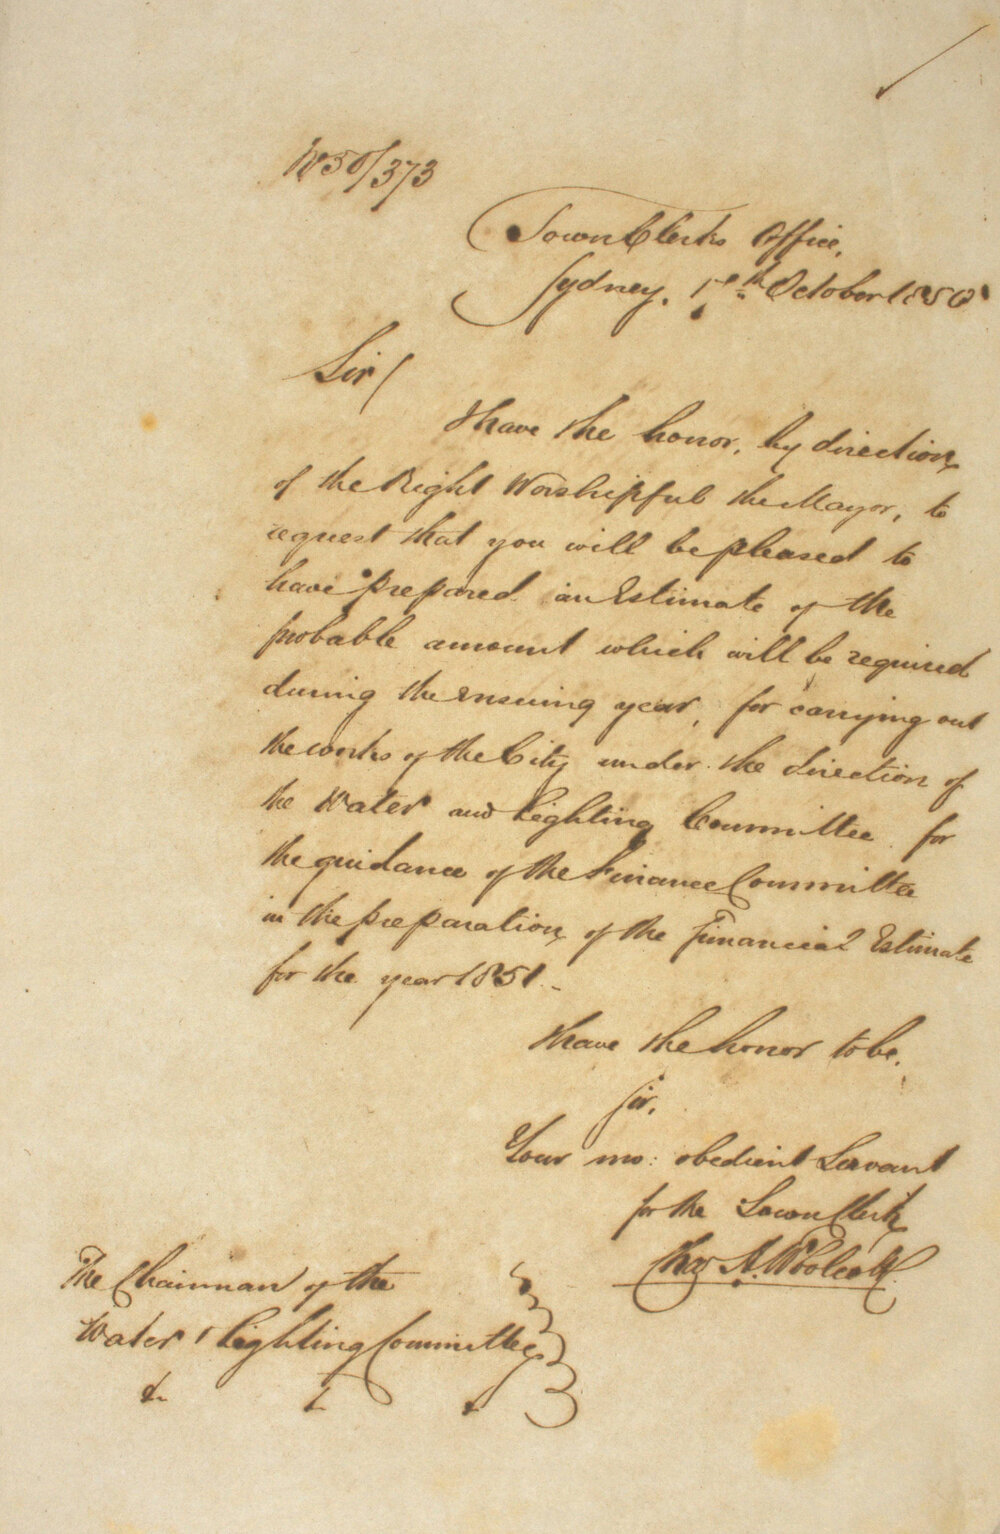 No 50/373
Town Clerks Office,
Sydney, 1th October 1850
Sir/
I have the honor, by direction
of the Right Worshipful the Mayor, to
request that you will be pleased to
have prepared an Estimate of the
probable amount which will be required
during the ensuing year, for carrying out
the works of the City under the direction of
the Water and Lighting Committee for
the guidance of the Finance Committee
in the preparation of the Financial Estimate
for the year 1851.
I have the honor to be,
Sir,
Your mo: obedient Servant
for the Town Clerk
Chas H. Woolcott
The Chairman of the
Water & Lighting Committee
&c &c &c